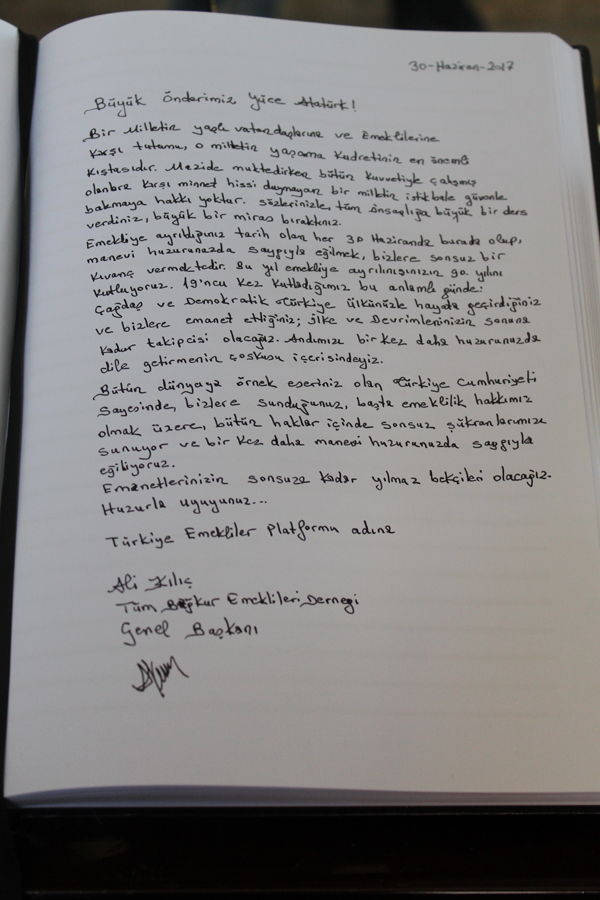 30-Haziran-2017
Büyük Önderimiz Yüce Atatürk!
Bir Milletin yaşlı vatandaşlarına ve Emeklilerine
karşı tutumu, o milletin yaşama Kudretinin en önemli
kıstasıdır. Mazide muktedirken bütün kuvvetiyle çalışmış
olanlara karşı minnet hissi duymayan bir milletin istikbale güvenle
bakmaya hakkı yoktur. sözlerinizle, tüm insanlığa büyük bir ders
verdiniz, büyük bir miras bıraktınız.
Emekliye ayrıldığınız tarih olan her 30 Haziranda burada olup,
manevi huzurunuzda saygıyla eğilmek, bizlere sonsuz bir
Kıvanç vermektedir. Bu yıl emekliye ayrılınışınızın 90. yılını
Kutluyoruz. 19'ncu Kez Kutladığımız bu anlamlı günde:
Çağdaş ve Demokratik Türkiye ülkünüzle hayata geçirdiğiniz
ve bizlere emanet ettiğiniz; ilke ve Devrimleninizin sonuna
kadar takipcisi olacağız. Andımızı bir kez daha huzurunuzda
dile getirmenin çoşkusu içerisindeyiz.
Bütün dünyaya örnek eseriniz olan Türkiye Cumhuriyeti
sayesinde, bizlere sunduğunuz, başta emeklilik hakkımız
olmak üzere, bütün haklar içinde sonsuz şükranlarımızı
sunuyor ve bir Kez daha manevi huzurunuzda saygıyla
eğiliyoruz.
Emanetlerinizin sonsuza Kadar yılmaz bekçileri olacağız.
Huzurla uyuyunuz...
Türkiye Emekliler Platformu adına
Ali Kılıç
Tüm Bağkur Emeklileri Dernegi
Genel Başkanı